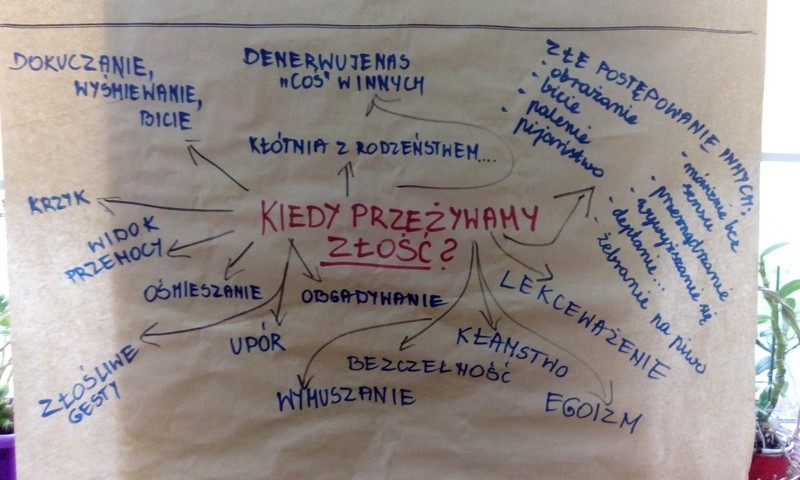 DOKUCZANIE,
WYŚMIEWANIE,
BICIE
DENERWUJE NAS
"COŚ" W INNYCH
KŁÓTNIA Z RODZEŃSTWEM....
ZŁE POSTĘPOWANIE INNYCH:
- obrażanie
- bicie
- palenie
- pijaństwo
- mówienie bez
sensu
- przerządzanie
- wywyższanie się
- deptanie...
- żebranie na piwo
KRZYK
WIDOK
PRZEMOCY
KIEDY PRZEŻYWAMY
ZŁOŚĆ?
OŚMIESZANIE
OBGADYWANIE
LEKCEWAŻENIE
ZŁOŚLIWE
GESTY
UPÓR
KŁAMSTWO
BEZCZELNOŚĆ
WYMUSZANIE
EGOIZM